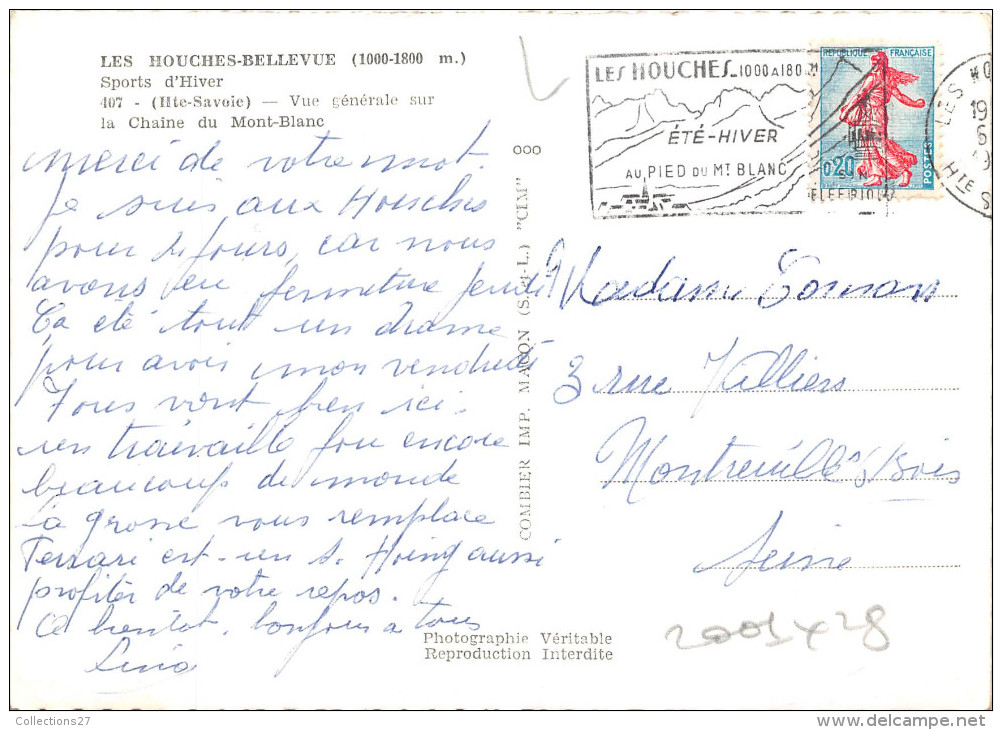 LES HOUCHES-BELLEVUE (1000-1800 m.)
Sports d'Hiver
407 - (Hte-Savoie) — Vue générale sur
la Chaîne du Mont-Blanc
Merci de votre mot.
Je suis aux Houches
pour 4 jours, car nous
avons eu fermeture jeudi
Ça été tout un drame
pour avoir mon vendredi
Tous vont bien ici.
un travaille fou encore
beaucoup de monde
la grosse vous remplace
Ferrari est-un s. aussi
profiter de votre repos.
A bientôt, bonjour a tous
ooo
COMBIER IMP. MACON (S.-et-L.) "CIM"
LES HOUCHES_1000 A 180 M
ÉTÉ-HIVER
AU PIED DU MT BLANC
REPUBLIQUE FRANÇAISE
0,20
POSTES
LES HO
19
6
19
HTE S
Madame
3 rue Valliers
Montreuille s/Bois
Seine
Photographie Véritable
Reproduction Interdite
2001 x 28
Collections27